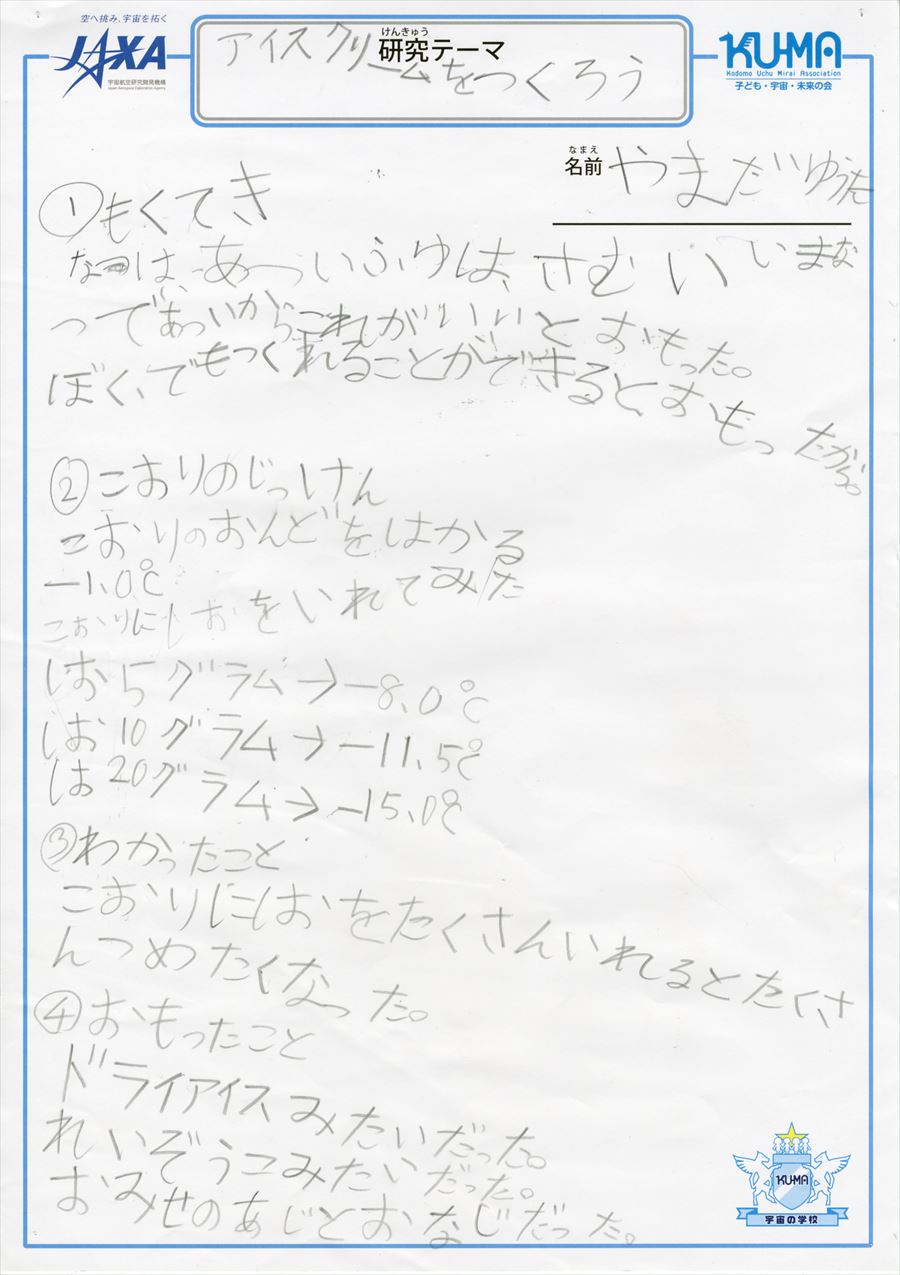 空へ挑み、宇宙を拓く
JAXA
宇宙航空研究開発機構
Japan Aerospace Exploration Agency
けんきゅう
研究テーマ
アイスクリームをつくろう
KU-MA
Kodomo Uchu Mirai Association
子ども・宇宙・未来の会
なまえ
名前 やまだ ゆうた
①もくてき
なつは、あついふゆは、さむい いまな
つであついからこれがいいとおもった。
ぼく、でもつくれることができるとおもっ たから。
②こおりのじっけん
こおりのおんどをはかる
−1.0℃
こおりにしおをいれてみた
しお5グラム→−8.0℃
しお10グラム→−11.5℃
しお20グラム→−15.0℃
③わかったこと
こおりにしおをたくさんいれるとたくさ
んつめたくなった。
④おもったこと
ドライアイスみたいだった。
れいぞうこみたいだった。
おみせのあじとおなじだった。
KU-MA
宇宙の学校